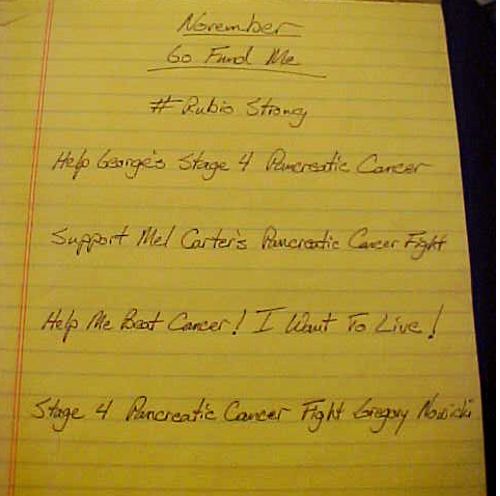 November
Go Fund Me
# Rubio Strong
Help George's Stage 4 Pancreatic Cancer
Support Mel Carter's Pancreatic Cancer Fight
Help Me Beat Cancer! I Want To Live!
Stage 4 Pancreatic Cancer Fight Gregory Nowicki